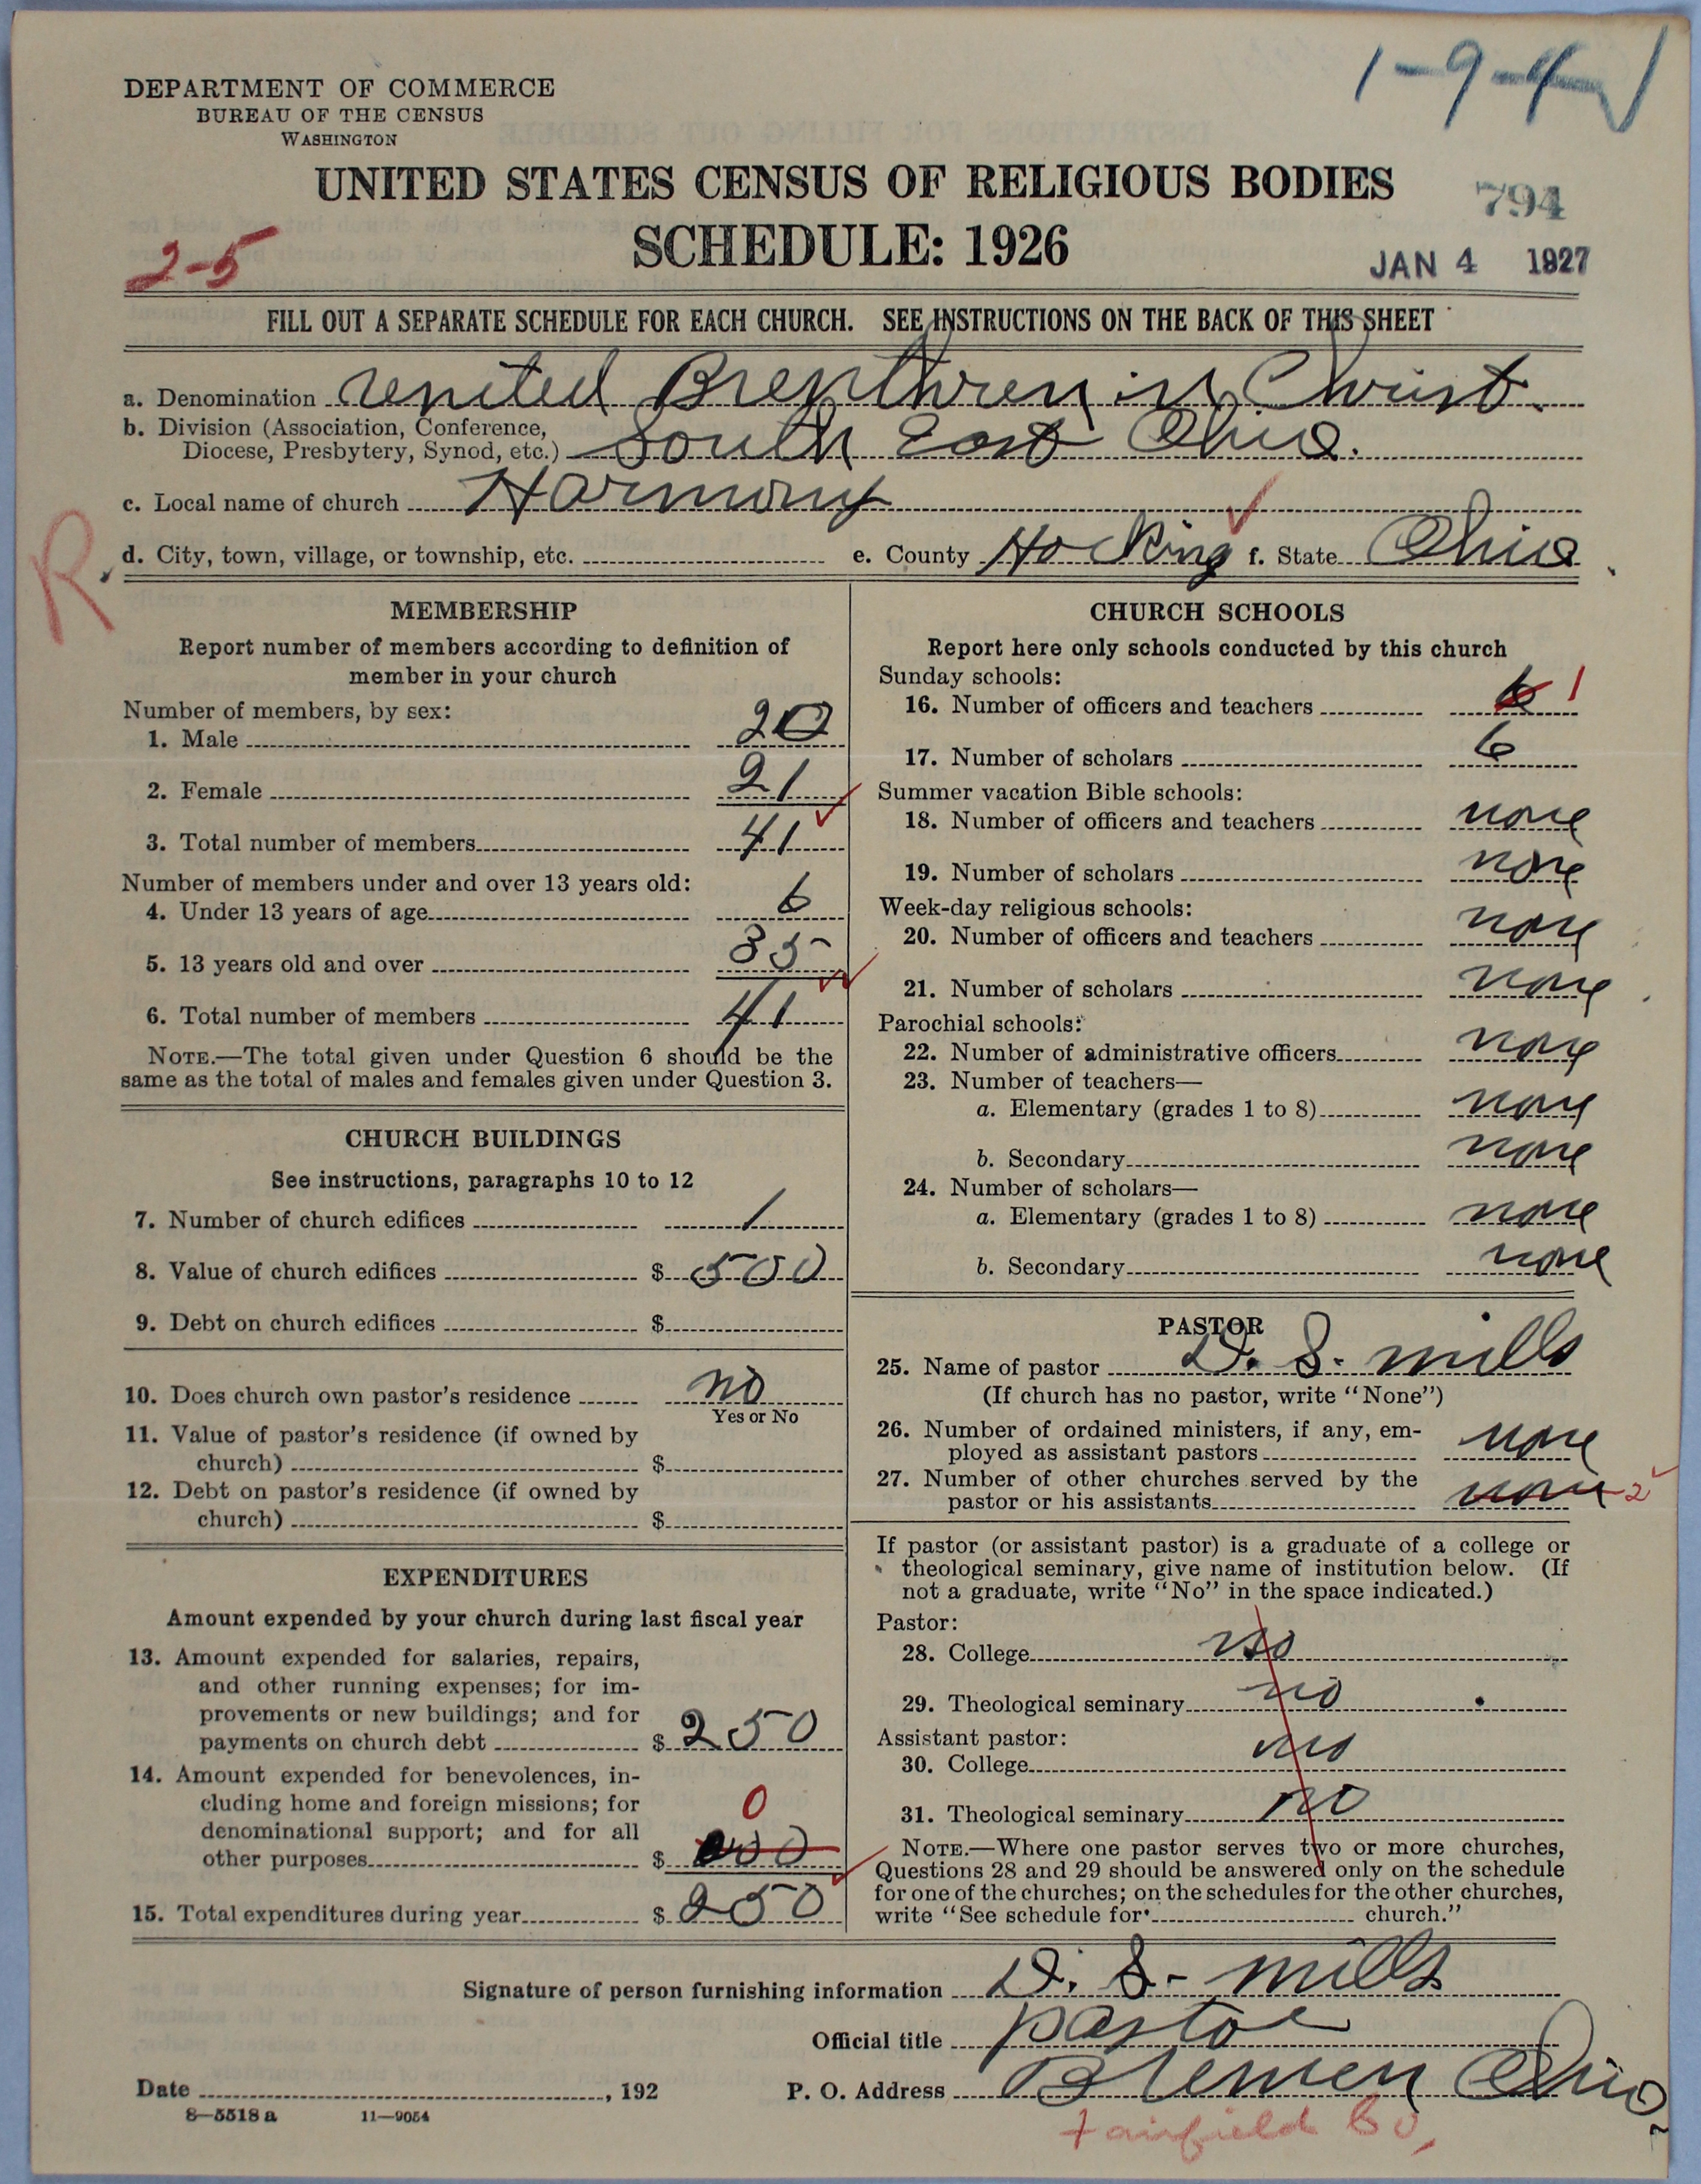 1-9-4
DEPARTMENT OF COMMERCE
BUREAU OF THE CENSUS
WASHINGTON
UNITED STATES CENSUS OF RELIGIOUS BODIES
794
SCHEDULE: 1926
2-5
JAN 4 1927
FILL OUT A SEPARATE SCHEDULE FOR EACH CHURCH. SEE INSTRUCTIONS ON THE BACK OF THIS SHEET
a. Denomination United Brepthren in Christ.
b. Division (Association, Conference,
Diocese, Presbytery, Synod, etc.) South East Ohio.
c. Local name of church Harmony
R
d. City, town, village, or township, etc. e. County Hocking f. State Ohio
MEMBERSHIP
Report number of members according to definition of
member in your church
Number of members, by sex:
1. Male 20
2. Female 21
3. Total number of members 41
Number of members under and over 13 years old:
4. Under 13 years of age 6
5. 13 years old and over 35
6. Total number of members 41
NOTE.—The total given under Question 6 should be the
same as the total of males and females given under Question 3.
CHURCH BUILDINGS
See instructions, paragraphs 10 to 12
7. Number of church edifices 1
8. Value of church edifices $ 500
9. Debt on church edifices $
10. Does church own pastor's residence no
Yes or No
11. Value of pastor's residence (if owned by
church) $
12. Debt on pastor's residence (if owned by
church) $
EXPENDITURES
Amount expended by your church during last fiscal year
13. Amount expended for salaries, repairs,
and other running expenses; for im-
provements or new buildings; and for
payments on church debt $ 250
14. Amount expended for benevolences, in-
cluding home and foreign missions; for
denominational support; and for all
0
other purposes $
15. Total expenditures during year $ 250
CHURCH SCHOOLS
Report here only schools conducted by this church
Sunday schools:
16. Number of officers and teachers 6 1
17. Number of scholars 6
Summer vacation Bible schools:
18. Number of officers and teachers none
19. Number of scholars none
Week-day religious schools:
20. Number of officers and teachers none
21. Number of scholars none
Parochial schools:
22. Number of administrative officers none
23. Number of teachers—
a. Elementary (grades 1 to 8) none
b. Secondary none
24. Number of scholars—
a. Elementary (grades 1 to 8) none
b. Secondary none
PASTOR
25. Name of pastor D. S. mills
(If church has no pastor, write "None")
26. Number of ordained ministers, if any, em-
ployed as assistant pastors none
27. Number of other churches served by the
pastor or his assistants none 2
If pastor (or assistant pastor) is a graduate of a college or
theological seminary, give name of institution below. (If
not a graduate, write "No" in the space indicated.)
Pastor:
28. College no
29. Theological seminary no
Assistant pastor:
30. College no
31. Theological seminary no
NOTE.—Where one pastor serves two or more churches,
Questions 28 and 29 should be answered only on the schedule
for one of the churches; on the schedules for the other churches,
write "See schedule for church."
Signature of person furnishing information D. S. mills
Official title pastor
Date , 192 P. O. Address Bremen Ohio.
8-5518 a 11-9054
Fairfield Co,